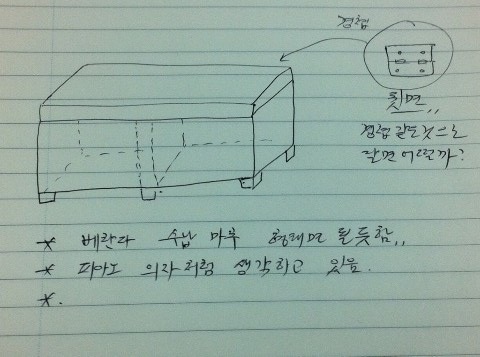 경첩
뒷면,,
경첩 같은것으로
달면 어떨까?
* 베란다 수납 마루 형태면 될듯함,,
* 피아노 의자처럼 생각하고 있음.
*.